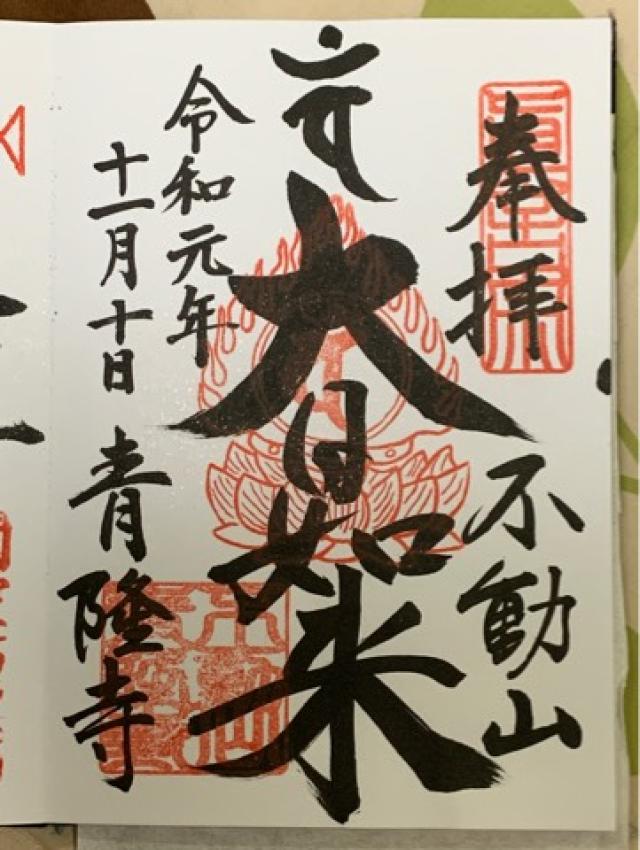 奉拝
不動山
大日如来
令和元年
十一月十日
青隆寺